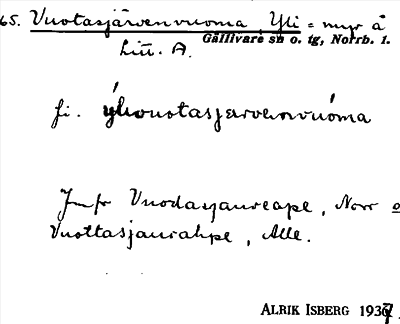 65. Vuotasjärvenvuoma, Yli = myr å
Litt. A. Gällivare sn o. tg, Norrb. l.
fi. ýlivuotasjærvenvuóma
Jmfr Vuodasjaureape, Norr o
Vuottasjaurahpe, Alle.
ALRIK ISBERG 1937.